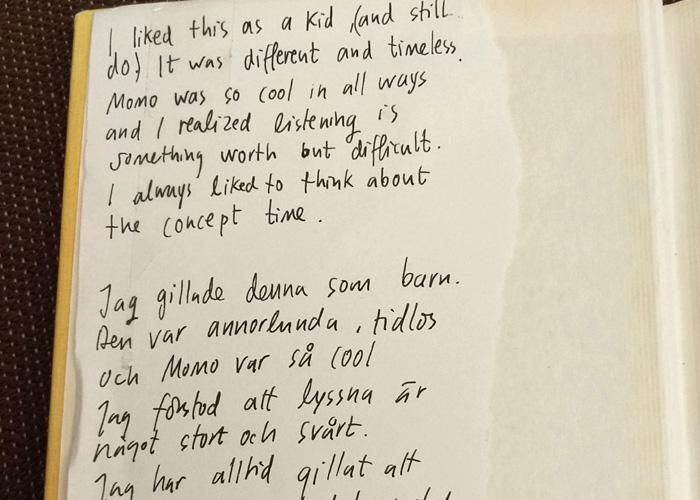 I liked this as a kid (and still
do) It was different and timeless.
Momo was so cool in all ways
and I realized listening is
something worth but difficult.
I always liked to think about
the concept time.
Jag gillade denna som barn.
Den var annorlunda, tidlös
och Momo var så cool
Jag förstod att lyssna är
något stort och svårt.
Jag har alltid gillat att